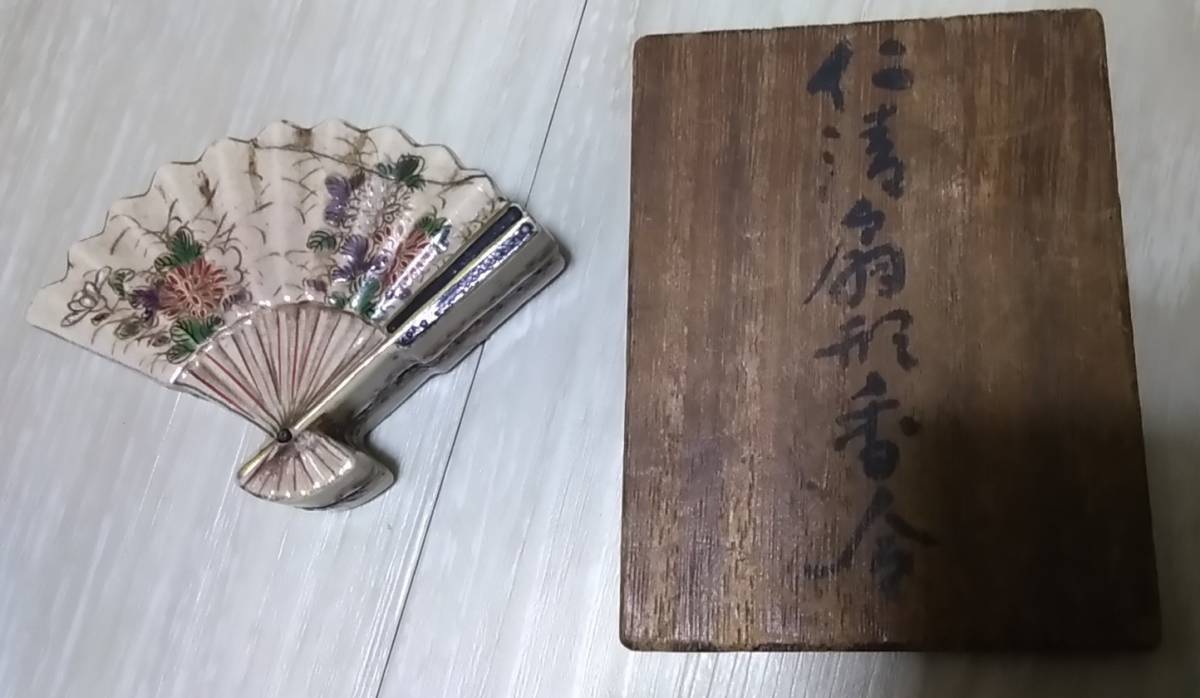 仁清扇形香合